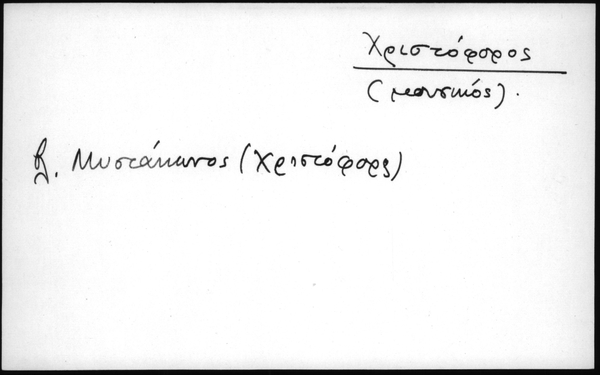 Χριστόφορος
(μουσικός).
βλ. Μυστάκωνος (Χριστόφορος)